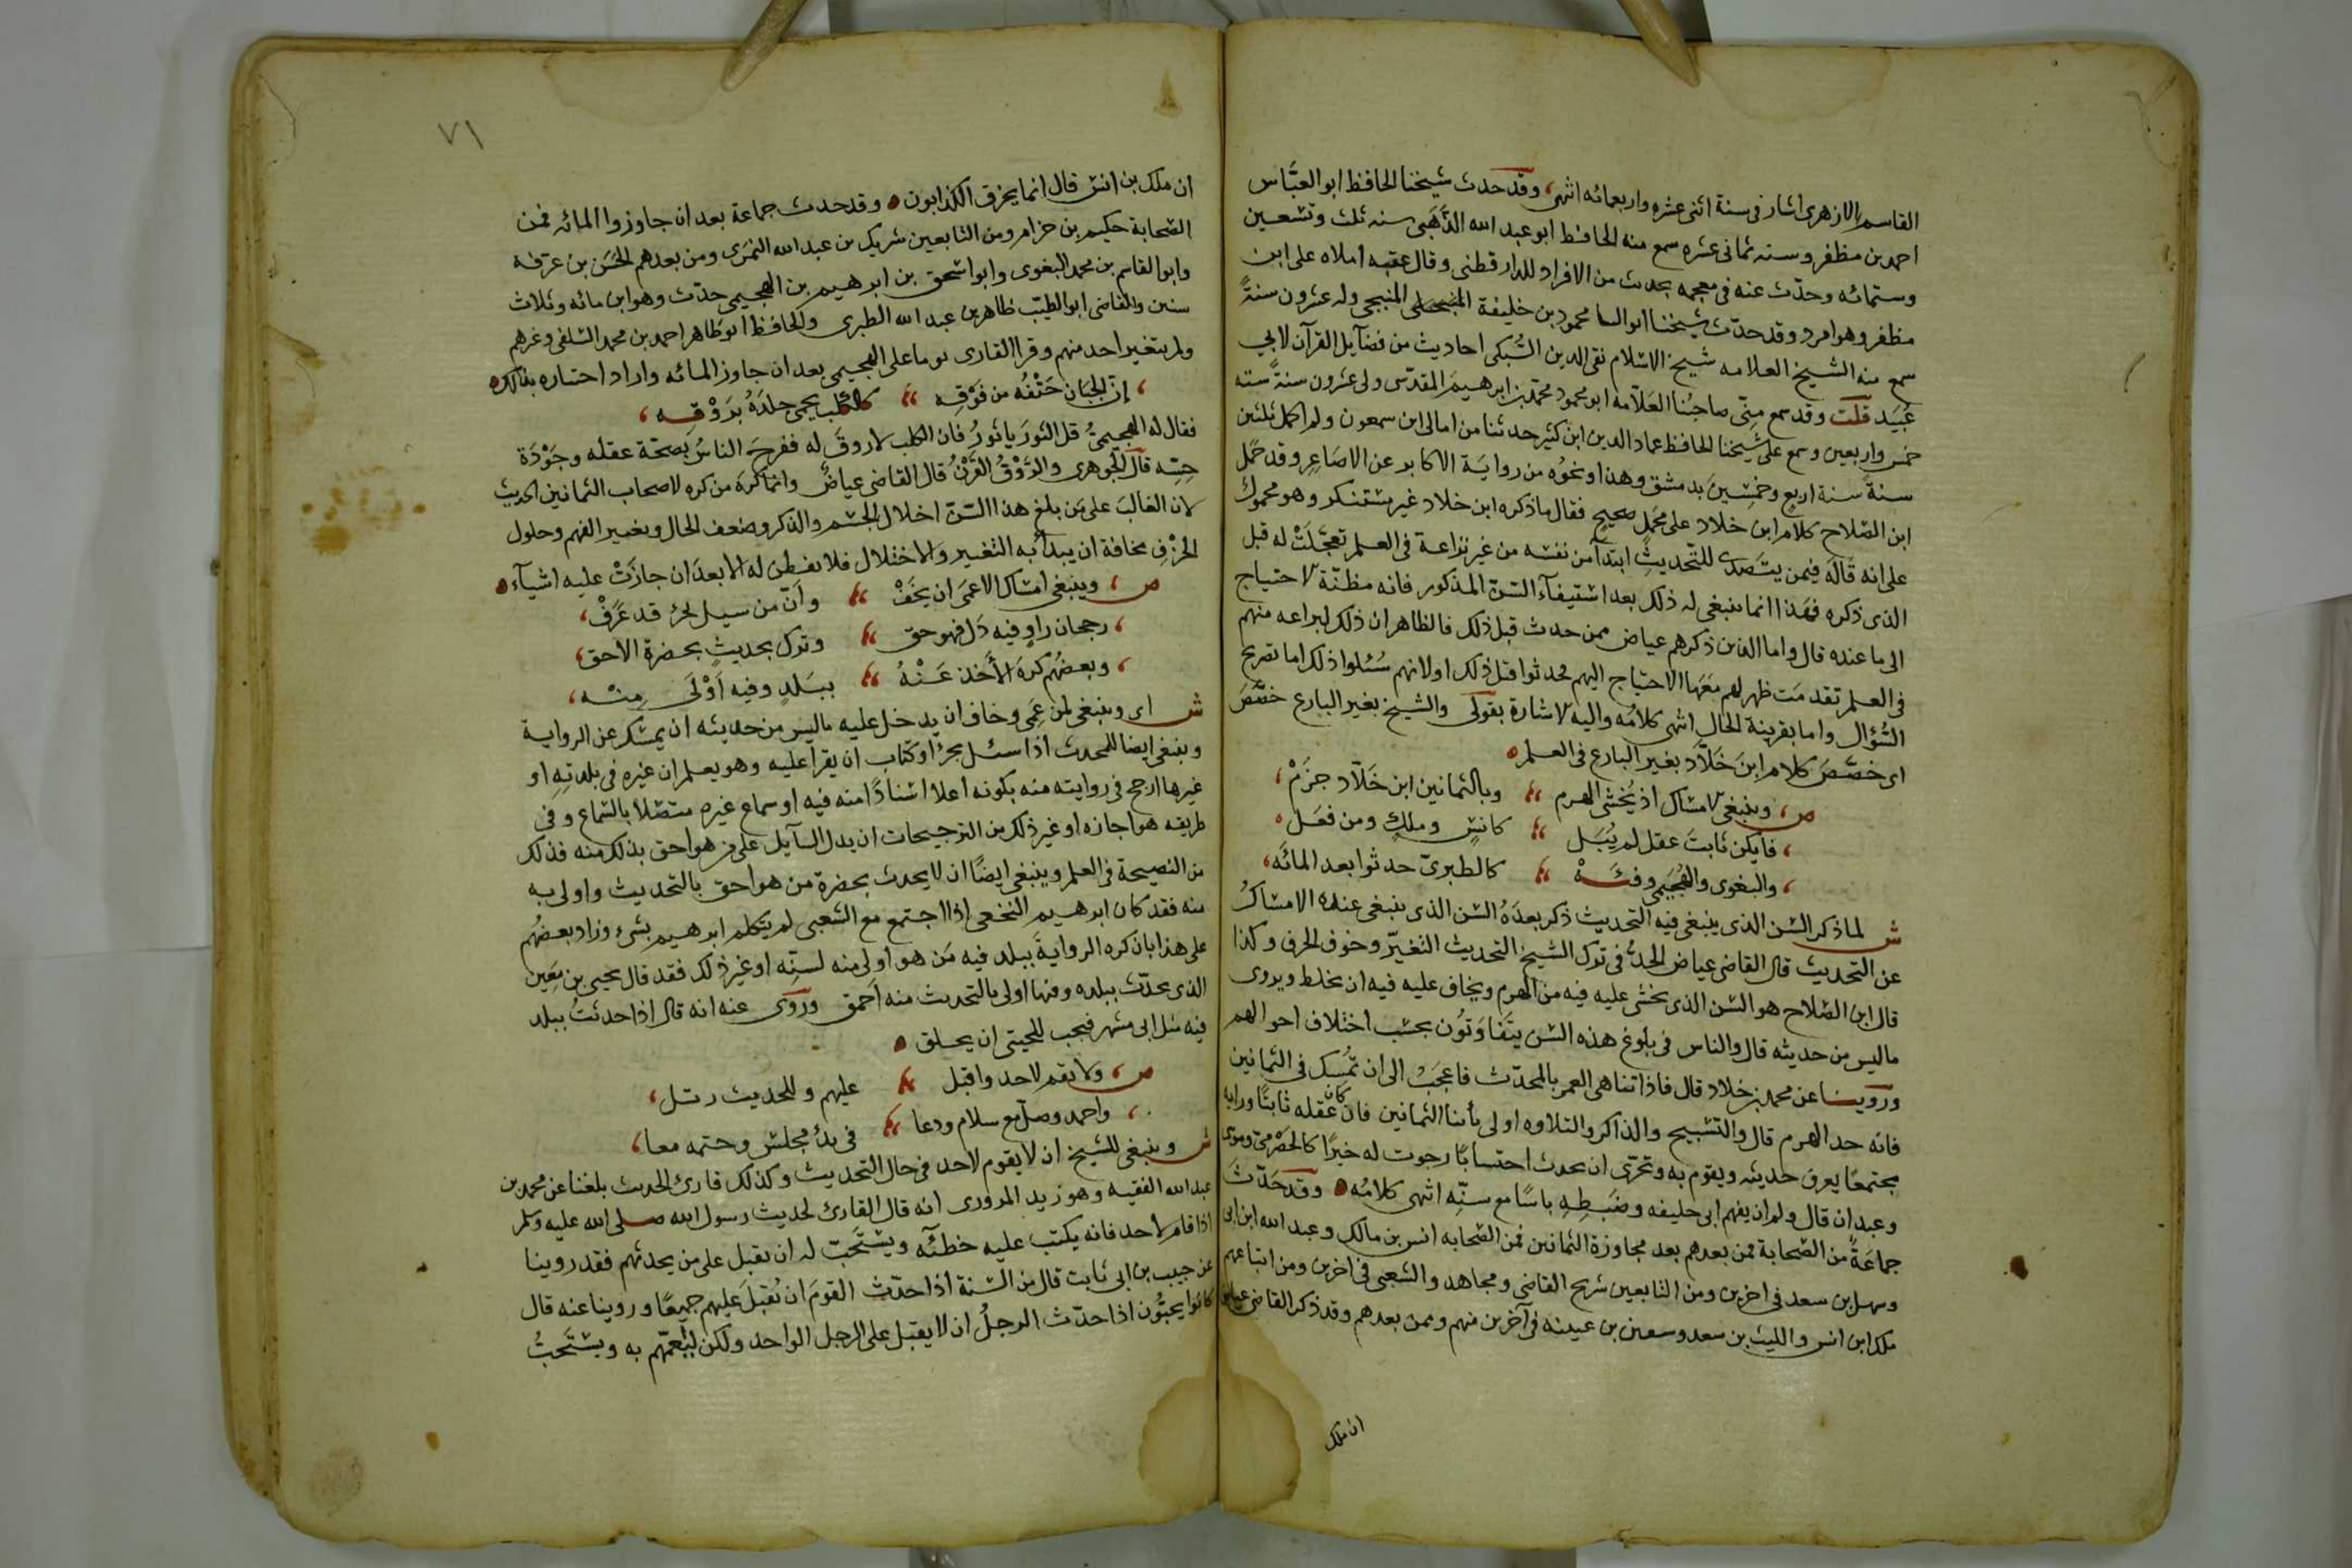 القاسم الازهرى اشار فى سنة اثنى عشره واربعمائه انتهى، وقد حدث شيخنا الحافظ ابو العبَّاس
احمد بن مظفر وسنه ثمانى عشره سمع منه الحافظ ابو عبد الله الذَّهَبى سنه ثلث وتسعين
وستمائه وحدّث عنه فى معجمه بحديث من الافراد للدارقطنى وقال عقبه املاه على ابن
مظفر وهو امرد وقد حدّث شيخنا ابو الثنا محمود بن خليفة المنبجى وله عشرون سنةً
سمع منه الشيخ العلامه شيخ الاسلام تقى الدين السُّبكى احاديث من فضآيل القرآن لابي
عُبَيد قلت وقد سمع منِّى صاحبُنا العَلاّمه ابو محمود محمّد بن ابرهيمَ المقدّسى ولى عشرون سنةً سنه
خمس واربعين وسمع على شيخنا الحافظ عماد الدين ابن كثير حدثنا من امالى ابن سمعون ولم اكمل ثلثين
سنةً سنة اربع وخمسِينَ بدمشق وهذا ونحوُه من روايَة الاكابر عن الاصَاغِر وقد حَمَل
ابن الصّلاح كلام ابن خلاد على محمَلٍ صحيح فقال ما ذكره ابن خلاد غير مستنكر وهو محمول
على انه قاله فِيمن يتَصدّى للتّحديثِ ابتدآً من نفسه من غير نزاعة فى العلم تعجَّلَتْ له قبل
الذى ذكره فهذا انما ينبغى له ذلك بعد استيفآء السّنّ المذكور فانه مظنّة لاحتياج
الى ما عنده قال واما الذين ذكرهم عياض ممن حدث قبل ذلك فالظاهر ان ذلك لبراعه منهم
فى العلم تقدمَت ظهر لهم مَعَهَا الاحتياج اليهم فحدثوا قبل ذلك او لانهم سُئلوا ذلك اما بصريح
السُّؤال واما بقرينة الحال انتهى كلامُه واليه الاشارة بقولى والشيخ بغير البارع خصَّصَ
اى خصَّصَ كلام ابن خَلاّد بغير البارع فى العلم
ص، وينبغى الامساك اذ يُخشى الهرم وبالثمانين ابن خَلاّد جزَمْ،
، فان يكن ثابتَ عقل لم يُبَل كانسٍ ومالكٍ ومن فعَل
، والبغوى والهُجَيمى وفئَهْ كالطبرىّ حدثوا بعد المائه،
ش لما ذكر السّن الذى ينبغى فيه التحديث ذكر بعدَهُ السّن الذى ينبغى عنده الامساكُ
عن التحديث قال القاضى عياض الحدُّ فى ترك الشيخ التحديث التغيّر وخوف الخرف وكذا
قال ابن الصّلاح هو السّن الذى يخشى عليه فيه من الهَرم ويخاف عليه فيه ان يخلط ويروى
ما ليس من حديثه قال والناس فى بلوغ هذه السّن يتَفاوَتوُن بحسَب اختلاف احوالهم
وروينا عن محمد بن خلاد قال فاذا تناهى العمر بالمحدّث فاعجَبُ الى ان تُمسِك فى الثمانين
فانه حد الهرم قال والتسبيح والذكر والتلاوه اولى بأبنا الثمانين فان كان عقله ثابتًا ورايه
مجتمعًا يعرف حديثه ويقوم به وتحرّى ان يحدث احتسابًا رجوت له خيرًا كالحَضْرَمىّ وموسى
وعبدان قال ولم ار بفهم ابى خليفه وضَبطِهِ باسًا مع سنّه انتهى كلامُه وقد حَدّثَ
جماعَةٌ من الصّحابة فمن بعدهم بعد مجاوزة الثمانين فمن الصَّحابه انس بن مالك وعبد الله ابن ابى
وسهل بن سعد فى اخرين ومن التابعين شريح القاضى ومجاهد والشعبى فى اخرين ومن اتباعهم
ملك ابن انس والليث بن سعد وسفين بن عيينه فى آخرين منهم وممن بعدهم وقد ذكر القاضى عياض
ان ملك
٧١
ان ملك بن انس قال انما يخرف الكذابون وقد حدث جماعة بعد ان جاوزوا المائه فمن
الصّحابة حكيم بن حزام ومن التابعين شريك بن عبد الله النمرى ومن بعدهم الحسَن بن عرفة
وابو القاسم بن محمد البغوى وابو اسحق بن ابرهيم بن الهجيمى حدّث وهو ابن مائه وثلاث
سنين والقاضى ابو الطيّب طاهر بن عبد الله الطبرى والحافظ ابو طاهر احمد بن محمد السّلفى وغيرهم
ولم يتغير احد منهم وقرا القارى يوما على الهجيمى بعد ان جاوز المائه واراد اختباره بذلك
، إنّ الجَبَان حَتْفُه من فَوْقِه كالكلب يحمى جلدَهُ برَوْقِه ،
فقال له الهجيمىُّ قل الثورَ ياثورُ فان الكلب لا روقَ له ففرحَ الناسُ بصحّة عقله وجَوْدَة
حِسِّه قال الجَوهرى والرَّوْقُ القَرْنُ قال القاضى عياضُ وانما كرهَ من كره لاصحاب الثمانين الحديث
لان الغالبَ على من بلغ هذا السّنّ اختلال الجسم والذكر وضعف الحال وتغيير الفهم وحلول
الخرَفِ مخافة ان يبدأ به التغيير والاختلال فلا يفطن له الا بعدَ ان جازَتْ عليه اشيآء
ص، وينبغى امساك الاعمَى ان يخَفْ وَانّ من سيل بجزءٍ قد عرَفْ،
، رجحان راوٍ فيه دَل فهو حق وترك بحديثٍ بحضرة الاحق،
، وبعضُهم كرهَ الأَخذ عَنْهُ ببَلدٍ وفيه اَوْلَى مِنْه،
ش اى وينبغى لمن عمِى وخاف ان يدخل عليه ما ليس من حديثه ان يمسك عن الرواية
وينبغى ايضا للمحدث اذا سئل بجزءٍ او كتاب ان يقرا عليه وهو يعلم ان غيره فى بلدتهِ او
غيرها ارجح فى روايته منه بكونه اعلا اسنادًا منه فيه او سماع غيره متصلا بالسّماع وفى
طريقه هو اجازه او غير ذلك من الترجيحات ان يدل السآيل على من هو احق بذلك منه فذلك
من النصيحة فى العلم وينبغى ايضًا ان لا يحدث بحضرة من هو احق بالتحديث واولى به
منه فقد كان ابرهيم النخعى اذا اجتمع مع الشعبى لم يتكلم ابرهيم بشىء وزاد بعضهُم
على هذا بان كره الروايةَ ببلد فيه مَن هو اولى منه لسنّه او غير ذلك فقد قال يحيى بن معِين
الذى يحدّث ببلده وفيها اولى بالتحديث منه أحمق وروى عنه انه قال اذا حدثتُ ببلد
فيه مثل ابى مسهر فيجب للحيتى ان يحلق
ص، ولا تقم لاحد واقبل عليهم وللحديث رتل،
، واحمد وصلّ مع سلام ودعا فى بدْءِ مجلسٍ وختمه معا،
ش وينبغى للشيخ ان لا يقوم لاحد فى حال التحديث وكذلك قارئ الحديث بلغنا عن محمد بن
عبد الله الفقيه وهو زيد المروزى انه قال القارئ لحديث رسول الله صلى الله عليه وسلم
اذا قام لأحد فانه يكتب عليه خطئه ويستَحَبّ له ان يقبل على من يحدثهم فقد روينا
عن حبيب بن ابى ثابت قال من السّنة اذا حدّث القومَ ان يُقبلَ عَليهم جميعًا وروينا عنه قال
كانوا يحبُّون اذا حدّث الرجلُ ان لا يقبل على الرجل الواحد ولكن ليَعمّهم به ويستَحبُّ